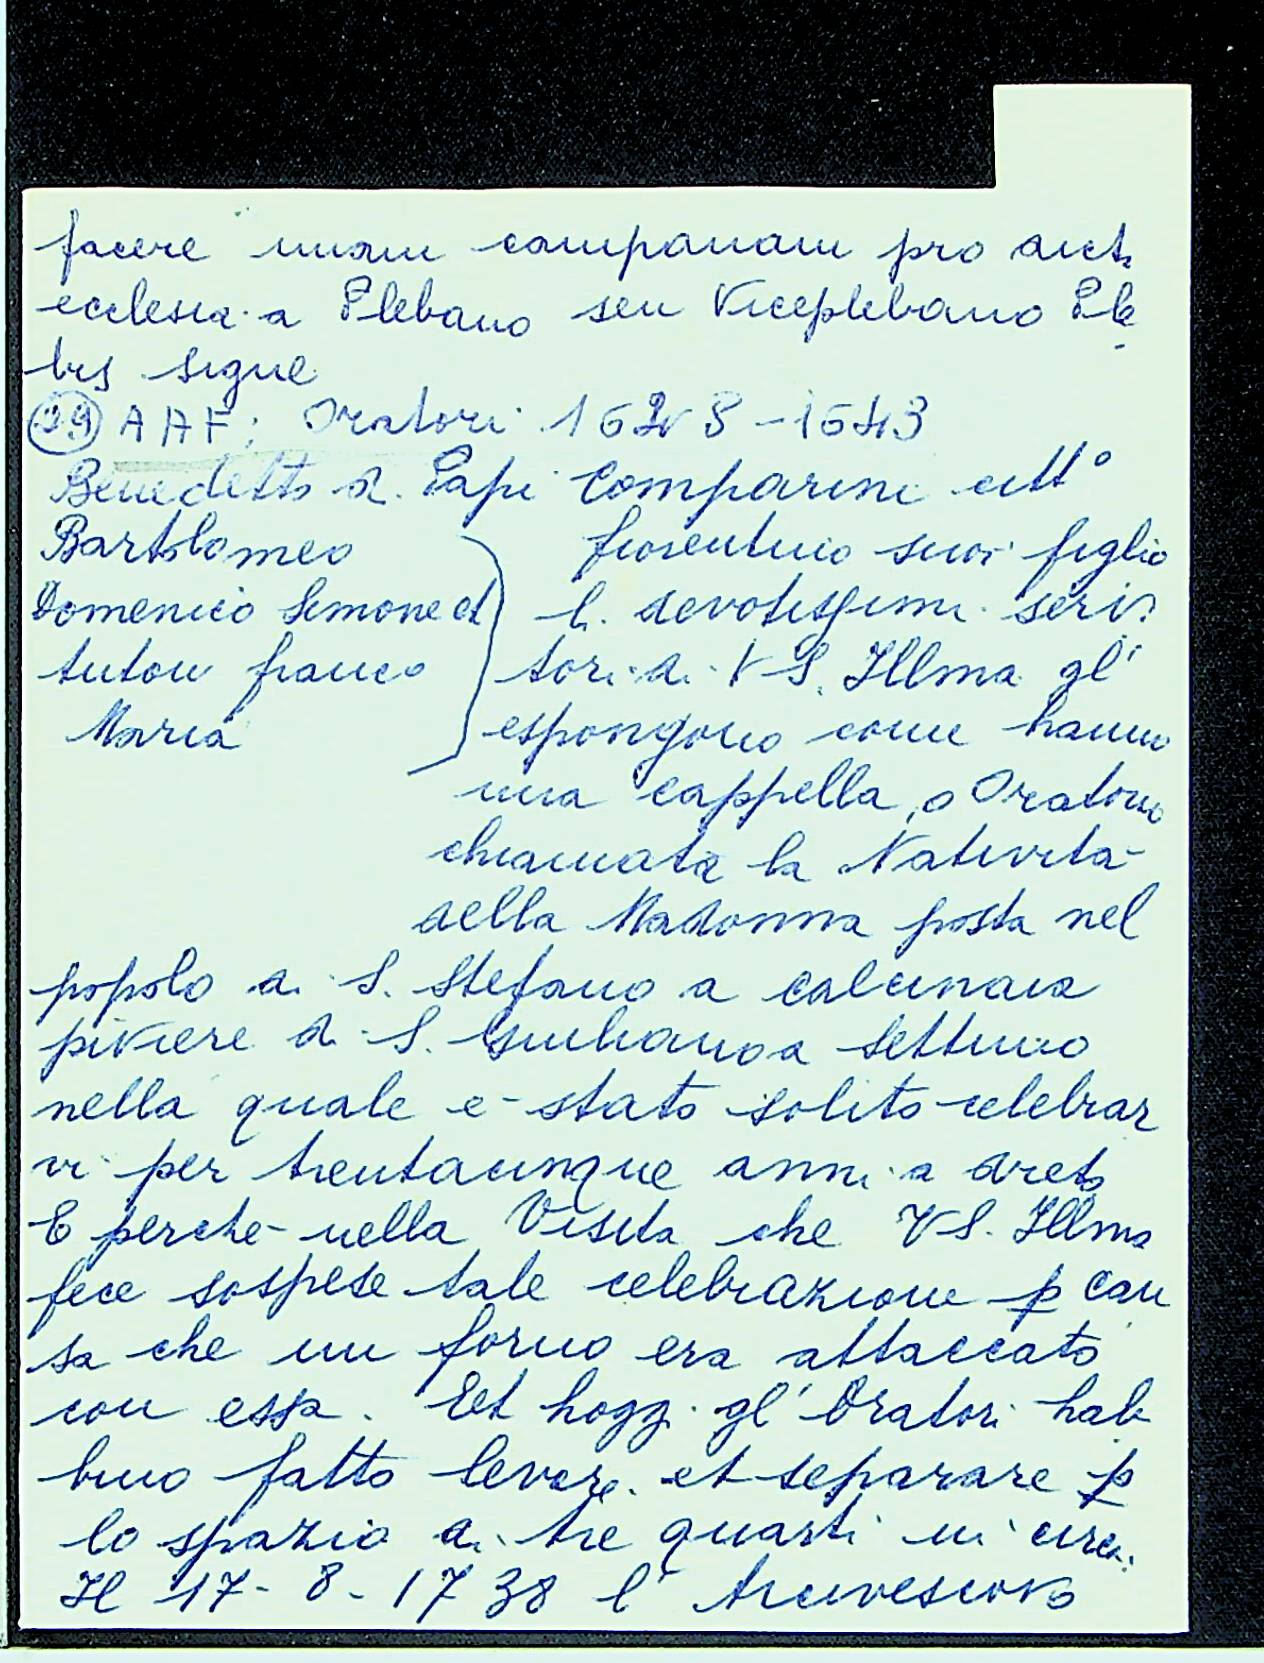 facere unam campanam pro dict.
ecclesia a Plebano seu Viceplebano Ple
bis sigue
(29) AAF; Oratori 1628-1643
Benedetto di Papi Comparini citt°
Bartolomeo
Domenico Simone et
Maria
fiorentino suoi figlio
l. devotissimi servi
tori di VS. Illma gl'
espongono come hanno
una cappella, o Oratorio
chiamata la Natività
della Madonna posta nel
popolo di S. Stefano a Calcinaia
piviere di S. Giuliano a Settimo
nella quale e- stato solito celebrar
vi per trentacinque anni a dreto
E perche- nella Visita che VS. Illma
fece sospese tale celebrazione p cau
sa che un forno era attaccato
con essa. Et hoggi gl' Oratori hab
bino fatto levare et separare p
lo spazio di tre quarti in circa.
Il 17-8-1738 l' Arcivescovo